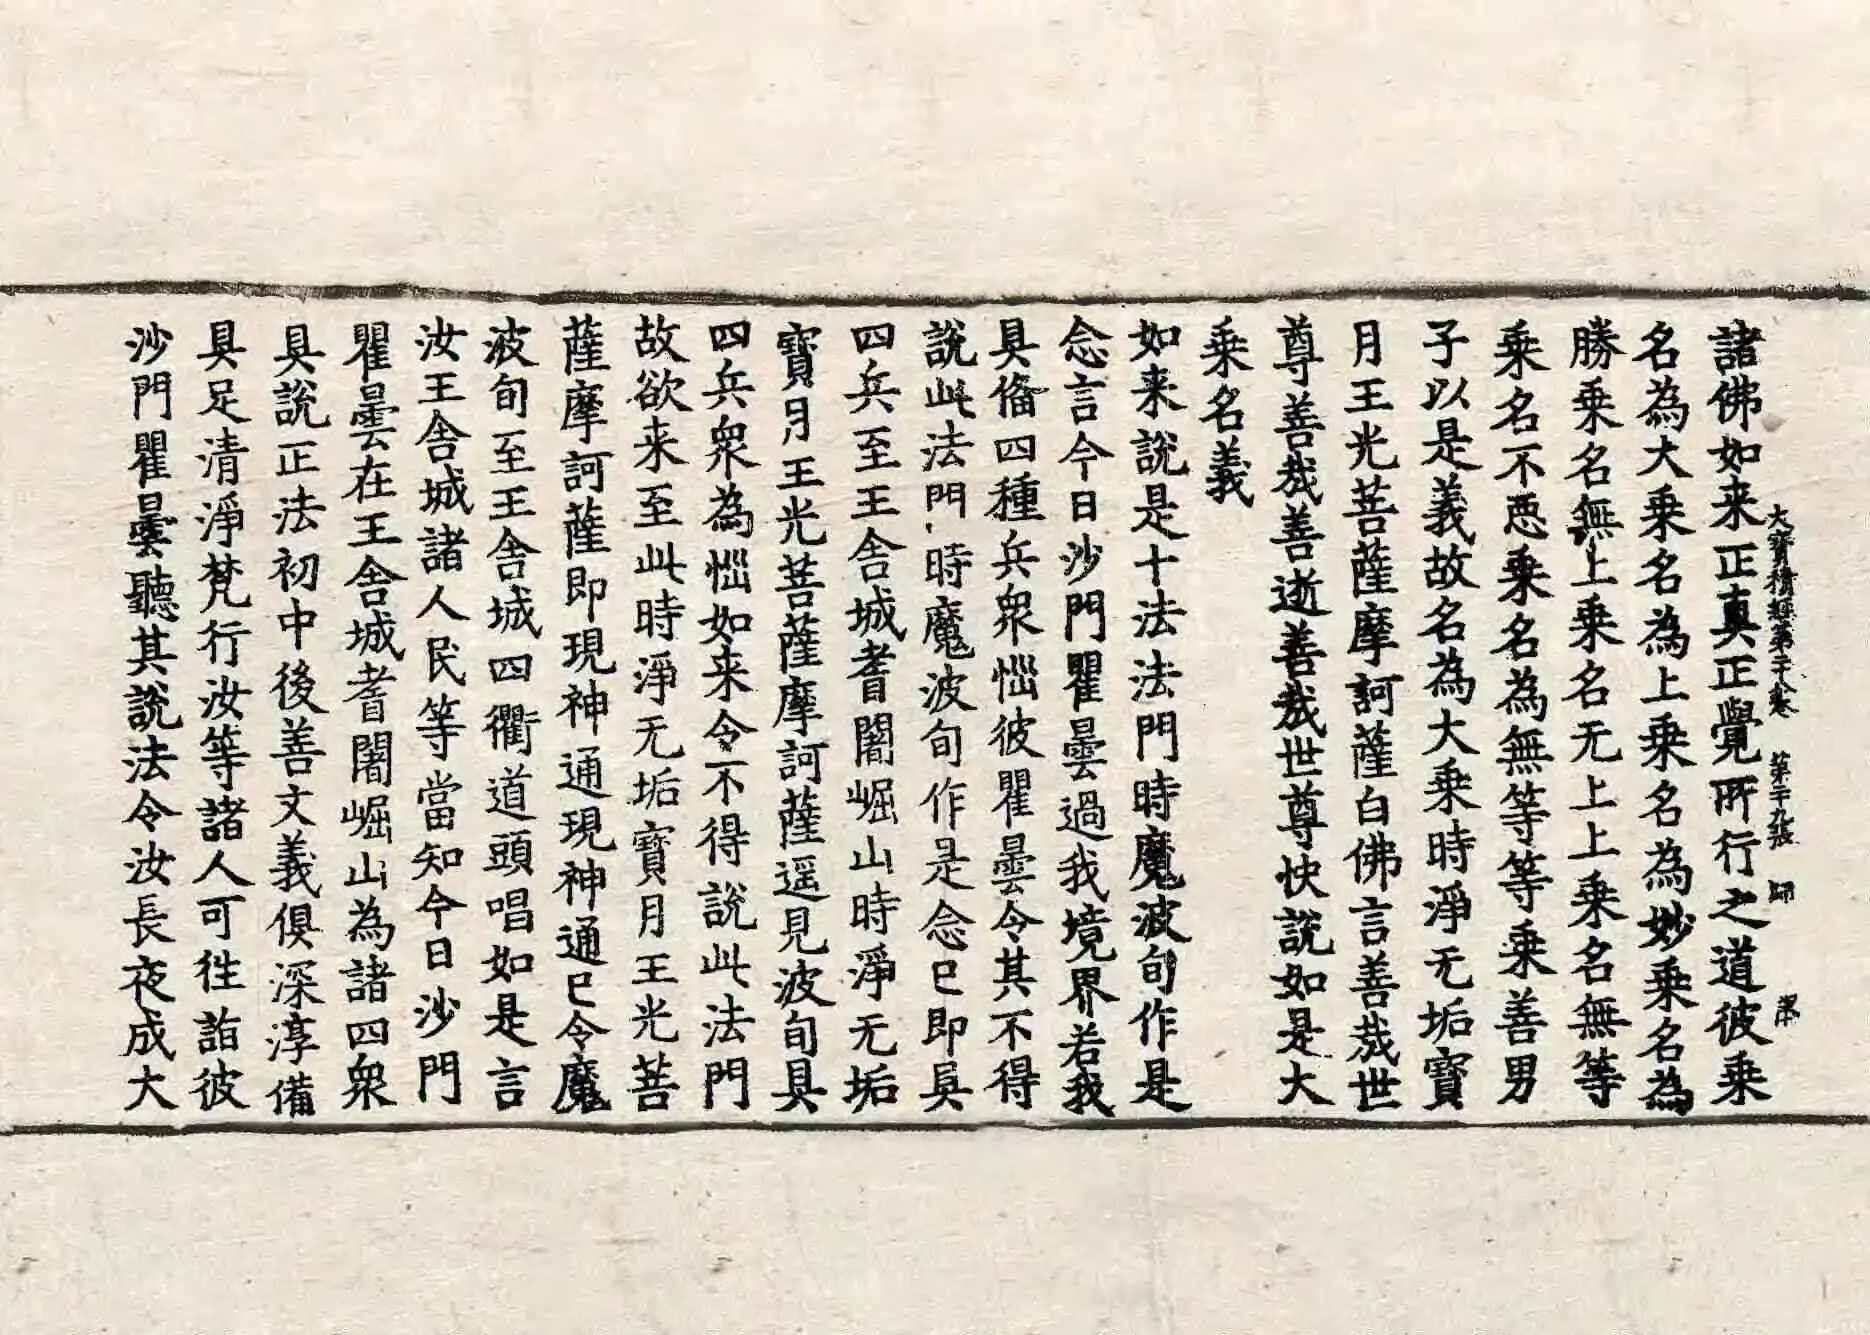 大寶積經第二十八卷 第二十九張 師
諸佛如来正真正覺所行之道彼乗
名為大乗名為上乗名為妙乗名為
勝乗名無上乗名无上上乗名無等
乗名不悪乗名為無等等乗善男
子以是義故名為大乗時淨无垢寶
月王光菩薩摩訶薩白佛言善㢤世
尊善㢤善逝善㢤世尊快說如是大
乗名義
如来說是十法法門時魔波旬作是
念言今日沙門瞿曇過我境界若我
具俻四種兵衆惱彼瞿曇令其不得
說此法門時魔波旬作是念已即具
四兵至王舍城耆闍崛山時淨无垢
寶月王光菩薩摩訶薩遥見波旬具
四兵衆為惱如来令不得說此法門
故欲来至此時淨无垢寶月王光菩
薩摩訶薩即現神通現神通已令魔
波旬至王舍城四衢道頭唱如是言
汝王舍城諸人民等當知今日沙門
瞿曇在王舍城耆闍崛山為諸四衆
具說正法初中後善文義俱深淳備
具足清淨梵行汝等諸人可徃詣彼
沙門瞿曇聽其說法令汝長夜成大